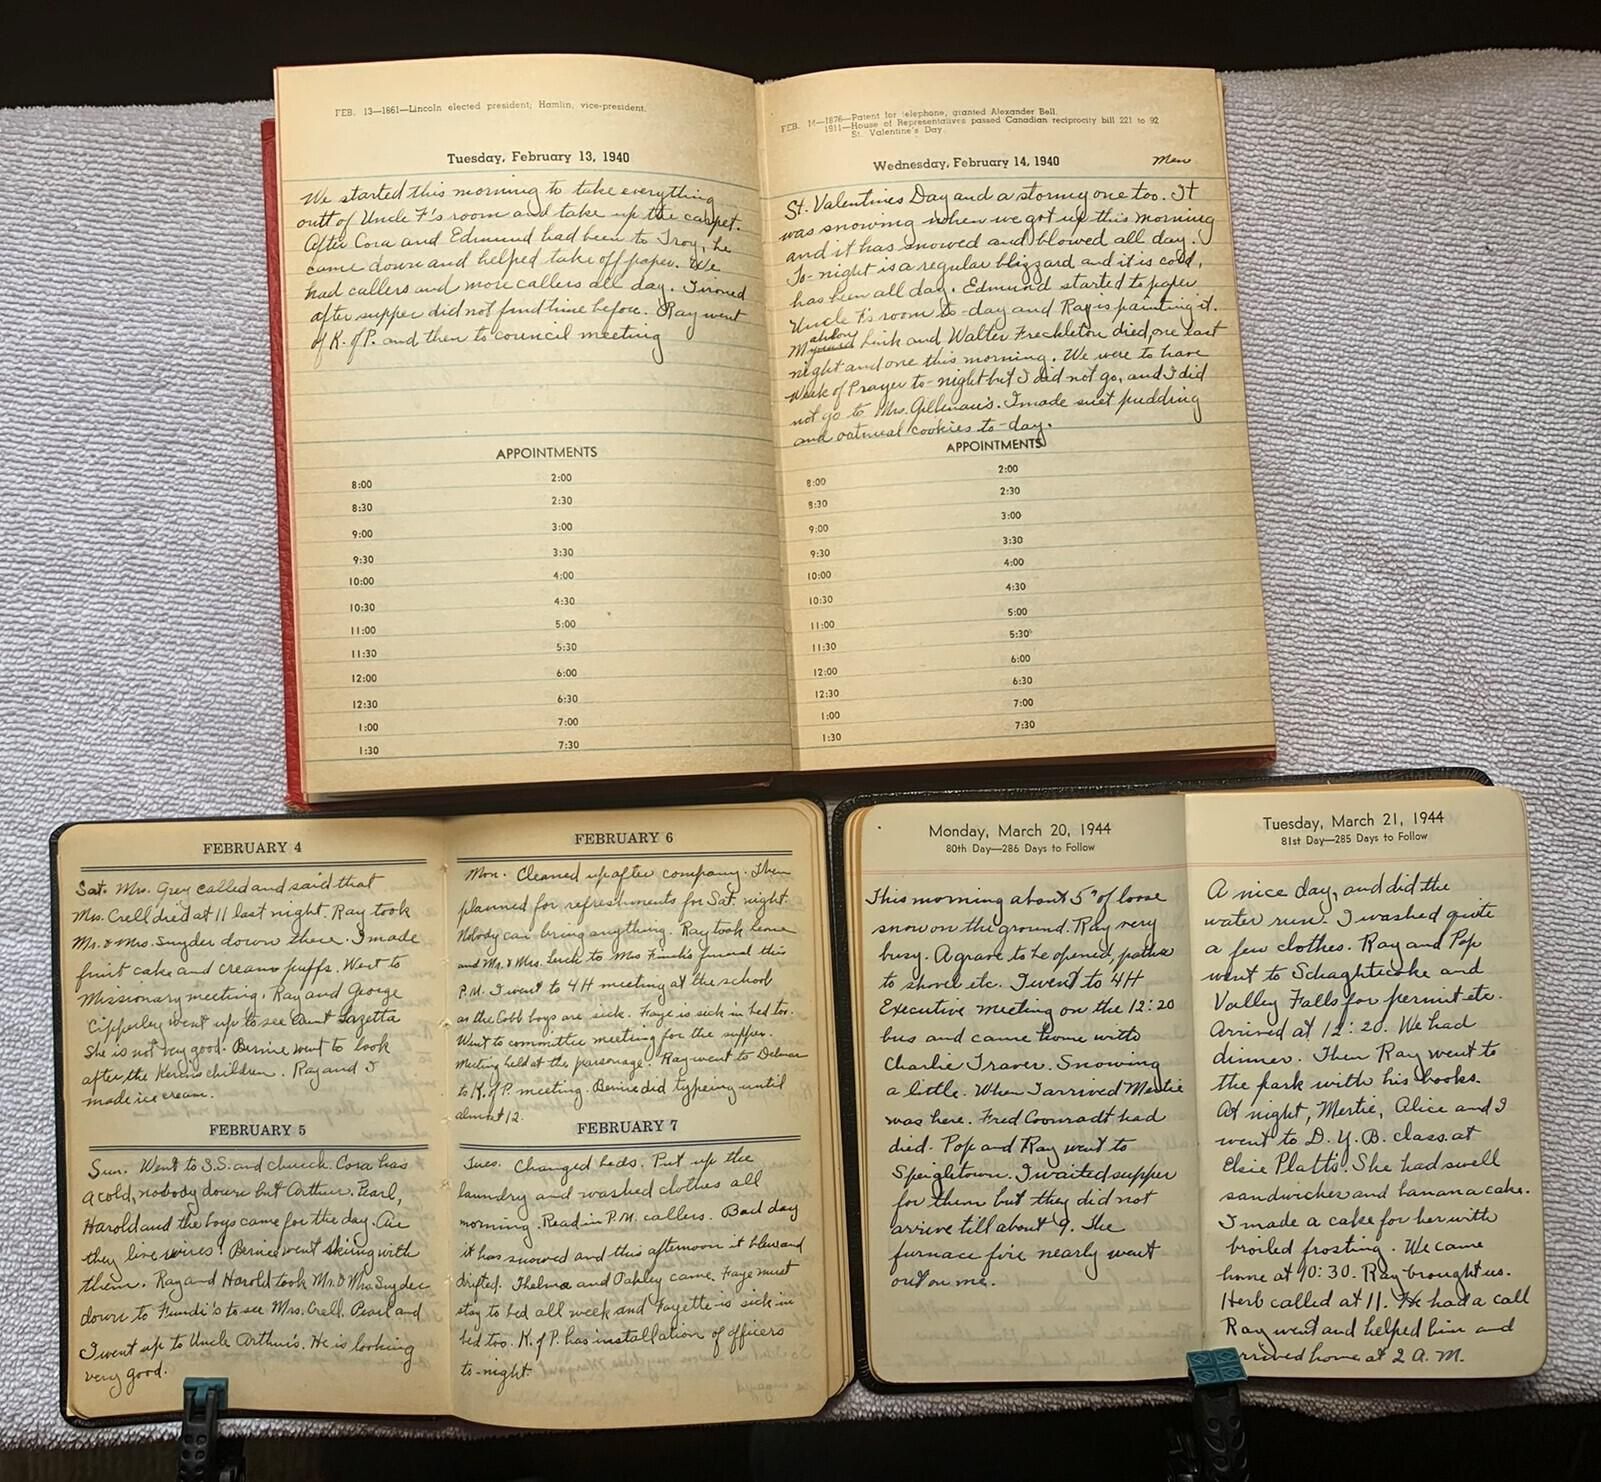 FEB. 13—1861—Lincoln elected president; Hamlin, vice-president.
Tuesday, February 13, 1940
We started this morning to take everything
outt of Uncle F's room and take up the carpet.
After Cora and Edmund had been to Troy, he
came down and helped take off paper. We
had callers and more callers all day. I ironed
after supper did not find time before. Ray went
of K. of P. and then to council meeting
APPOINTMENTS
8:00 2:00
8:30 2:30
9:00 3:00
9:30 3:30
10:00 4:00
10:30 4:30
11:00 5:00
11:30 5:30
12:00 6:00
12:30 6:30
1:00 7:00
1:30 7:30
FEB. 14—1876—Patent for telephone, granted Alexander Bell.
1911—House of Representatives passed Canadian reciprocity bill 221 to 92
St. Valentine's Day.
Wednesday, February 14, 1940
St. Valentines Day and a stormy one too. It
was snowing when we got up this morning
and it has snowed and blowed all day.
To-night is a regular blizzard and it is cold,
has been all day. Edmund started to paper
Uncle F's room to-day and Ray is painting it.
Link and Walter Freckleton died, one last
night and one this morning. We were to have
Week of Prayer to-night but I did not go, and I did
not go to Mrs. Gillman's. I made suet pudding
and oatmeal cookies to-day.
APPOINTMENTS
8:00 2:00
8:30 2:30
9:00 3:00
9:30 3:30
10:00 4:00
10:30 4:30
11:00 5:00
11:30 5:30
12:00 6:00
12:30 6:30
1:00 7:00
1:30 7:30
FEBRUARY 4
Sat. Mrs. Grey called and said that
Mrs. Crell died at 11 last night. Ray took
Mr. & Mrs. Snyder down there. I made
fruit cake and cream puffs. Went to
Missionary meeting. Ray and George
Cipperley went up to see Aunt Lozetta
She is not very good. Bernice went to look
after the Kerins children. Ray and I
made ice cream.
FEBRUARY 5
Sun. Went to S.S. and church. Cora has
a cold, nobody down but Arthur. Pearl,
Harold and the boys came for the day. Are
they live wires! Bernice went skiing with
them. Ray and Harold took Mr. & Mrs Snyder
down to to see Mrs. Crell. Pearl and
I went up to Uncle Arthur's. He is looking
very good.
FEBRUARY 6
Mon. Cleaned up after company. Then
planned for refreshments for Sat. night.
Nobody can bring anything. Ray took
and Mr. & Mrs. to Mrs Finch's funeral this
P.M. I went to 4H meeting at the school
as the Cobb boys are sick. Faye is sick in bed too.
Went to committee meeting for the supper.
Meeting held at the parsonage. Ray went to Delmar
to K. of P. meeting. Bernice did typeing until
almost 12.
FEBRUARY 7
Tues. Changed beds. Put up the
laundry and washed clothes all
morning. Read in P.M. callers. Bad day
it has snowed and this afternoon it blew and
drifted. Thelma and Oakley came. Faye must
stay to bed all week and Fayette is sick in
bed too. K. of P. has installation of officers
to-night.
Monday, March 20, 1944
80th Day—286 Days to Follow
This morning about 5" of loose
snow on the ground. Ray very
busy. A grave to be opened, paths
to shovel etc. I went to 4H
Executive meeting on the 12:20
bus and came home with
Charlie Traver. Snowing
a little. When I arrived Mertie
was here. Fred Coonradt had
died. Pop and Ray went to
Speigletown. I waited supper
for them but they did not
arrive till about 9. The
furnace fire nearly went
out on me.
Tuesday, March 21, 1944
81st Day—285 Days to Follow
A nice day, and did the
water run. I washed quite
a few clothes. Ray and Pop
went to Schaghticoke and
Valley Falls for permit etc.
Arrived at 12:20. We had
dinner. Then Ray went to
the park with his books.
At night, Mertie, Alice and I
went to D.Y.B. class at
Elsie Platts'. She had swell
sandwiches and banana cake.
I made a cake for her with
broiled frosting. We came
home at 10:30. Ray brought us.
Herb called at 11. He had a call
Ray went and helped him and
arrived home at 2 A.M.